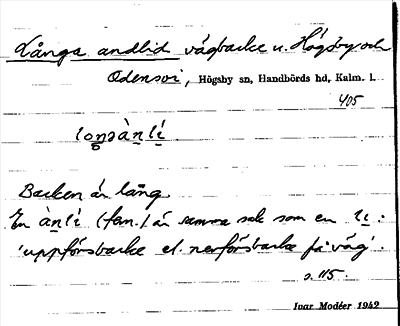 Långa andlid vägbacke u. Högsby och
Odensvi, Högsby sn, Handbörds hd, Kalm. l.
405
loŋsànlí
Backen är lång
En ànlí (fem.) är samma sak som en lị:
'uppförsbacke el. nerförsbacke på väg'.
s. 115
Ivar Modéer 1942